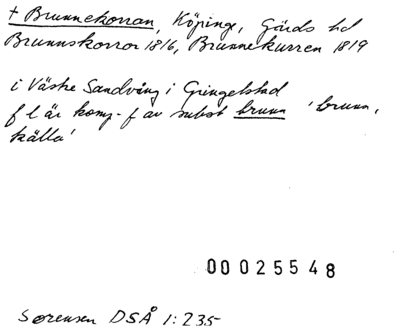 + Brunnekorran, Köpinge, Gärds hd
Brunnskorror 1816, Brunnekurren 1819
i Västre Sandvång i Gringelstad
f l är komp.-f av subst brunn 'brunn,
källa'
00025548
Sørensen DSÅ 1:235